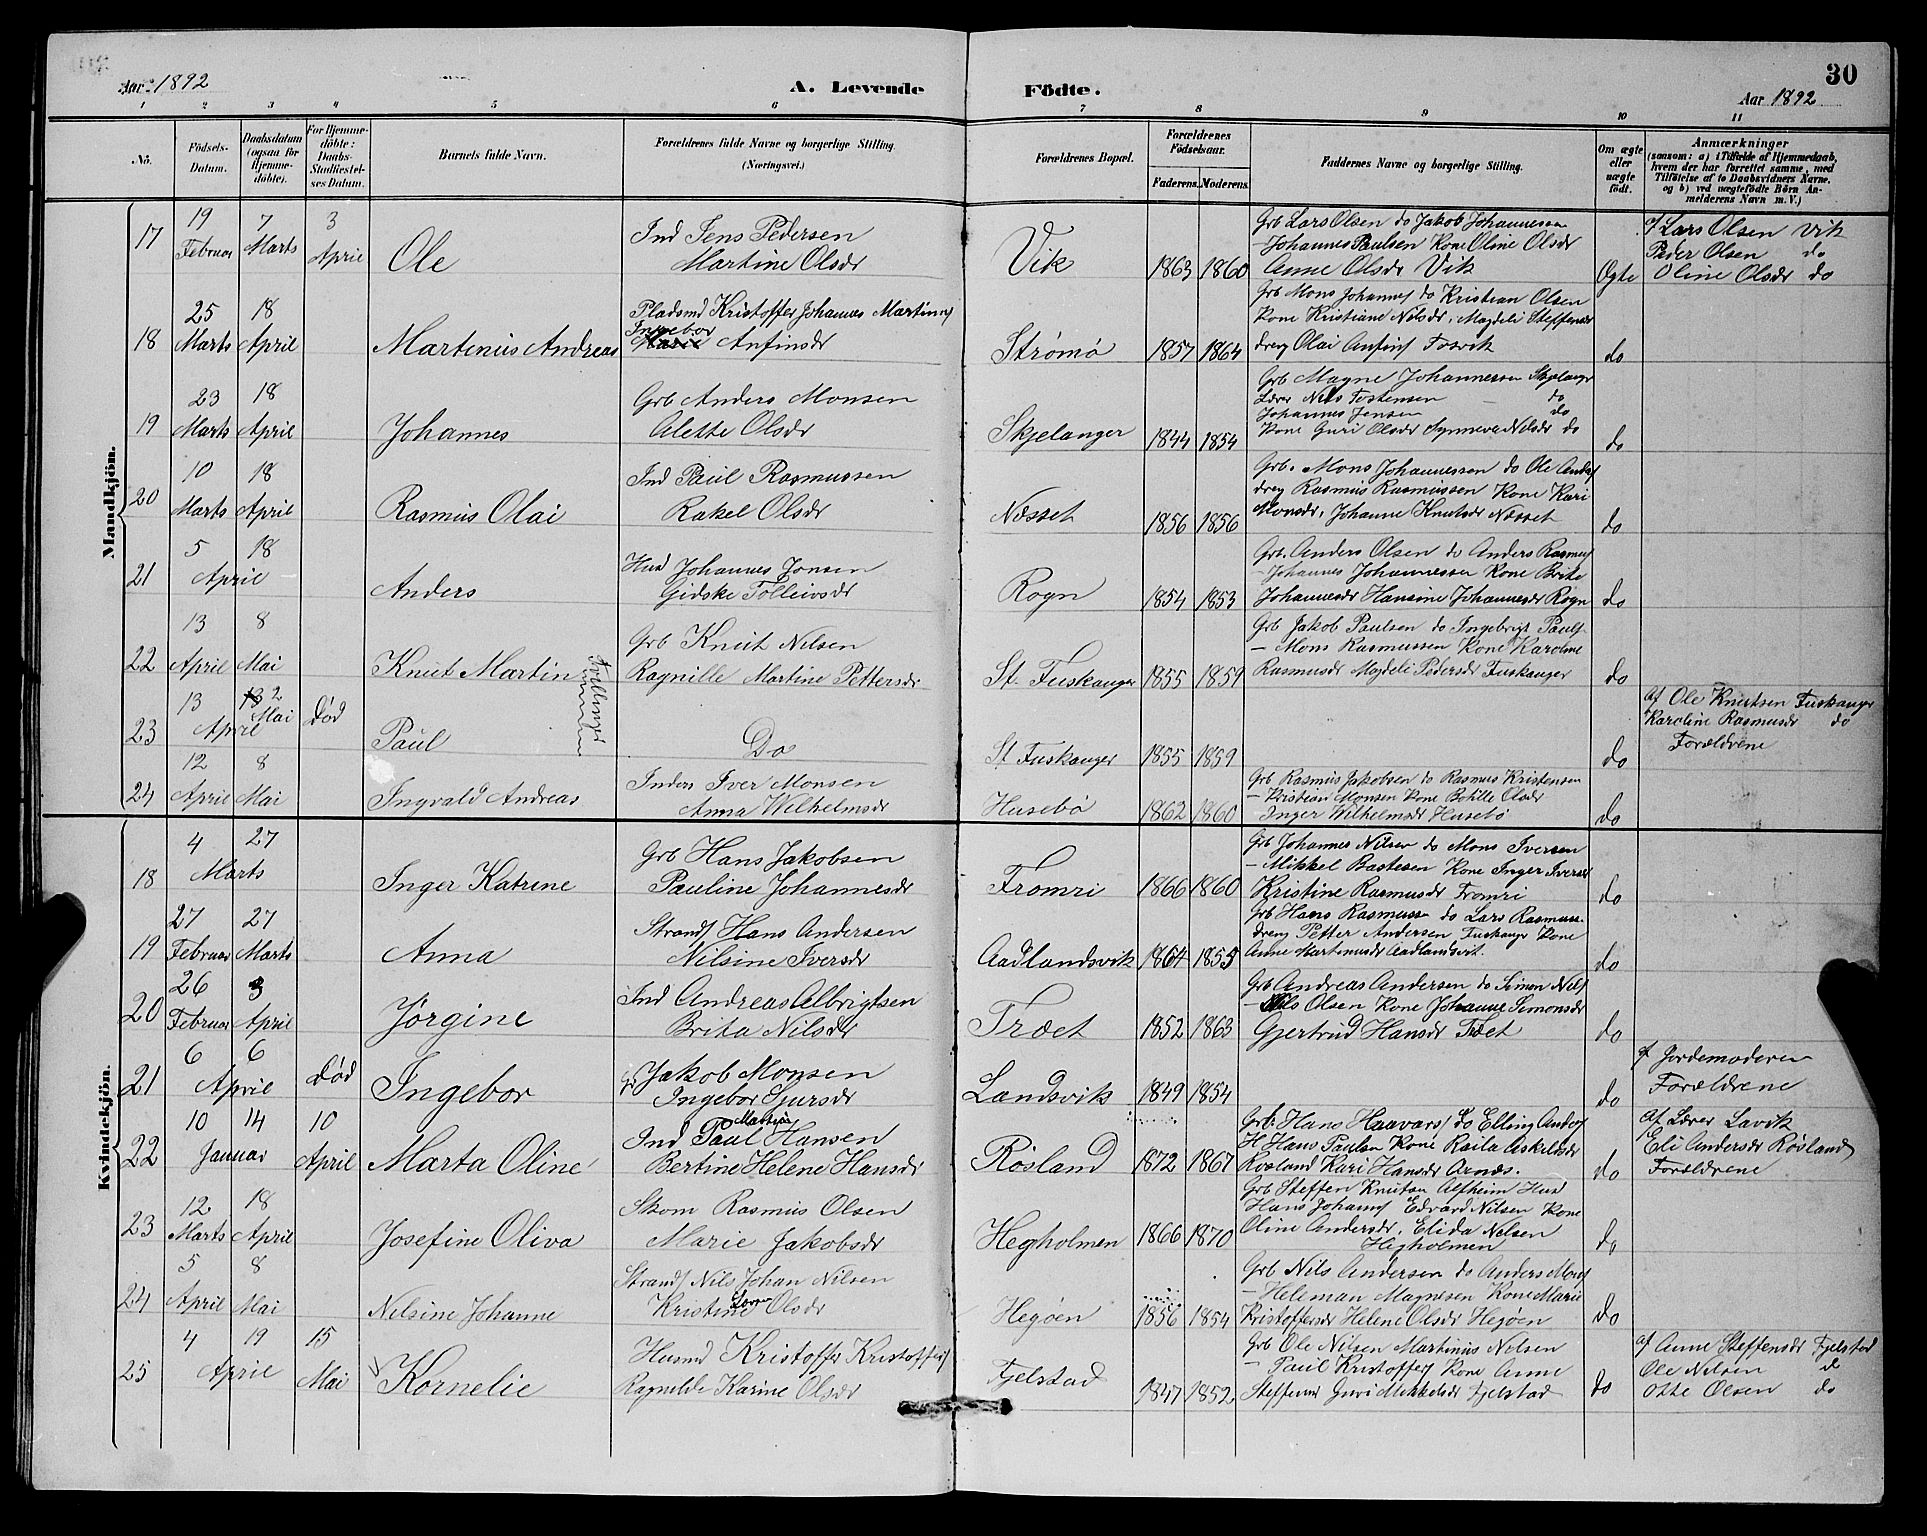 30
Aar 1892
A. Levende Födte.
Aar 1892
1 2 3 4 5 6 7 8 9 10 11
No.
Födsels-Datum.
Daabsdatum (ogsaa for Hjemme-döbte).
For Hjemme-döbte: Daabs-Stadfæstelses Datum.
Barnets fulde Navn.
Forældrenes fulde Navne og borgerlige Stilling.
(Næringsvei.)
Forældrenes Bopæl.
Forældrenes Födselsaar.
Faderens. Moderens.
Faddernes Navne og borgerlige Stilling.
Om ægte eller uægte födt.
Anmærkninger
(saasom: a) i Tilfælde af Hjemmedaab, hvem der har forrettet samme, med Tilföielse af to Daabsvidners Navne, og b) ved uægtefödte Börn Anmelderens Navn m. V.)
Mandkjön.
17 19 Februar 7 Marts 3 April Ole
Ind Jens Pedersen
Martine Olsdr
Vik 1863 1860
Grb Lars Olsen do Jakob Johannessen
Johannes Paulsen Kone Oline Olsdr
Anne Olsdr Vik
Ægte
af Lars Olsen Vik
Peder Olsen do
Oline Olsdr do
18 25 Marts 18 April Martenius Andreas
Pladsmd Kristoffer Johannes Martinus
Ingebor Anfinsdr
Strømø 1857 1864
Grb Mons Johannes do Kristian Olsen
Kone Kristiane Nilsdr, Magdeli Steffensdr
dreng Olai Anfins Fosvik
do
19 23 Marts 18 April Johannes
Grb Anders Monsen
Alette Olsdr
Skjelanger 1844 1854
Grb Magne Johannessen Skjelanger
Lærer Nils Torstensen do
Johannes Jensen do
Kone Guri Olsdr Synneva Nilsdr do
do
20 10 Marts 18 April Rasmus Olai
Ind Paul Rasmussen
Rakel Olsdr
Næsset 1856 1856
Grb. Mons Johannessen do Ole Anders
dreng Rasmus Rasmussen Kone Kari
Monsdr, Johanne Knutsdr Næsset
do
21 5 18 April Anders
Hus Johannes Jonsen
Gidske Tolleivsdr
Rogn 1854 1853
Grb. Anders Olsen do Anders Rasmus
Johannes Johannessen Kone Brite
Johannesdr Hansine Johannesdr Rogn
do
22 13 April 8 Mai Knut Martin
Tvillinger
Grb Knut Nilsen
Ragnille Martine Pettersdr
St. Fuskanger 1855 1859
Grb Jakob Paulsen do Ingebrigt Pauls
Mons Rasmussen Kone Karoline
Rasmusdr Magdeli Pedersdr Fuskanger
do
23 13 April 2 Mai Død Paul
Do
St Fuskanger 1855 1859
do
af Ole Knutsen Fuskanger
Karoline Rasmusdr do
Forældrene
24 12 April 8 Mai Ingvald Andreas
Inders Iver Monsen
Anna Wilhelmsdr
Husebø 1862 1860
Grb Rasmus Jakobsen do Rasmus Kristensen
Kristian Monsen Kone Botille Olsdr
Inger Wilhelmsdr Husebø
do
Kvindekjön.
18 4 27 Marts Inger Katrine
Grb Hans Jakobsen
Pauline Johannesdr
Fromri 1866 1860
Grb Johannes Nilsen do Mons Iversen
Mikkel Bastesen Kone Inger Iversdr
Kristine Rasmusdr Fromri
do
19 27 Februar 27 Marts Anna
Strands Hans Andersen
Nilsine Iversdr
Aadlandsvik 1864 1855
Grb Hans Rasmussen do Lars Rasmuss.
dreng Petter Andersen Fuskangr Kone
Anne Martinusdr Aadlandsvik.
do
20 26 Februar 3 April Jørgine
Ind Andreas Albrigtsen
Brita Nilsdr
Træet 1852 1863
Grb Andreas Andersen do Simon Nils
Nils Olsen Kone Johanne Simonsdr
Gjertrud Hansdr Træet
do
21 6 6 April Død Ingebor
Gr Jakob Monsen
Ingebor Sjursdr
Landsvik 1849 1854
do
af Jordemoderen
Forældrene
22 10 14 Januar 10 April Marta Oline
Ind Paul Mattias Hansen
Bertine Helene Hansdr
Røsland 1872 1867
Grb. Hans Haavars do Elling Anders
H Hans Paulsen Kone Raila Askeldsdr
Rosland Kari Hansdr Arnæs.
do
af Lærer Lavik
Eli Andersdr Røsland
Forældrene
23 12 Marts 18 April Josefine Oliva
Skom Rasmus Olsen
Marie Jakobsdr
Hegholmen 1866 1870
Grb Steffen Knutsen Alfheim Hus
Hans Johans Edvard Nilsen Kone
Oline Andersdr, Elida Nelsen
Hegholmen
do
24 5 April 8 Mai Nelsine Johanne
Strands Nils Johan Nilsen
Kristine Olsdr
Hegøen 1856 1854
Grb Nils Andersen do Anders Mons
Heleman Magnesen Kone Marie
Kristoffersdr Helene Olsdr Hegøen
do
25 4 19 April 15 Mai Kornelie
Husmd Kristoffer Kristoffers
Ragnilde Karine Olsdr
Fjelstad 1847 1852
Grb Ole Nilsen Martinus Nelsen
Paul Kristoffers Kone Anne
Steffensdr Guri Mikkelsdr Fjelstad
do
af Anne Steffensdr Fjelstad
Ole Nilsen do
Otte Olsen do